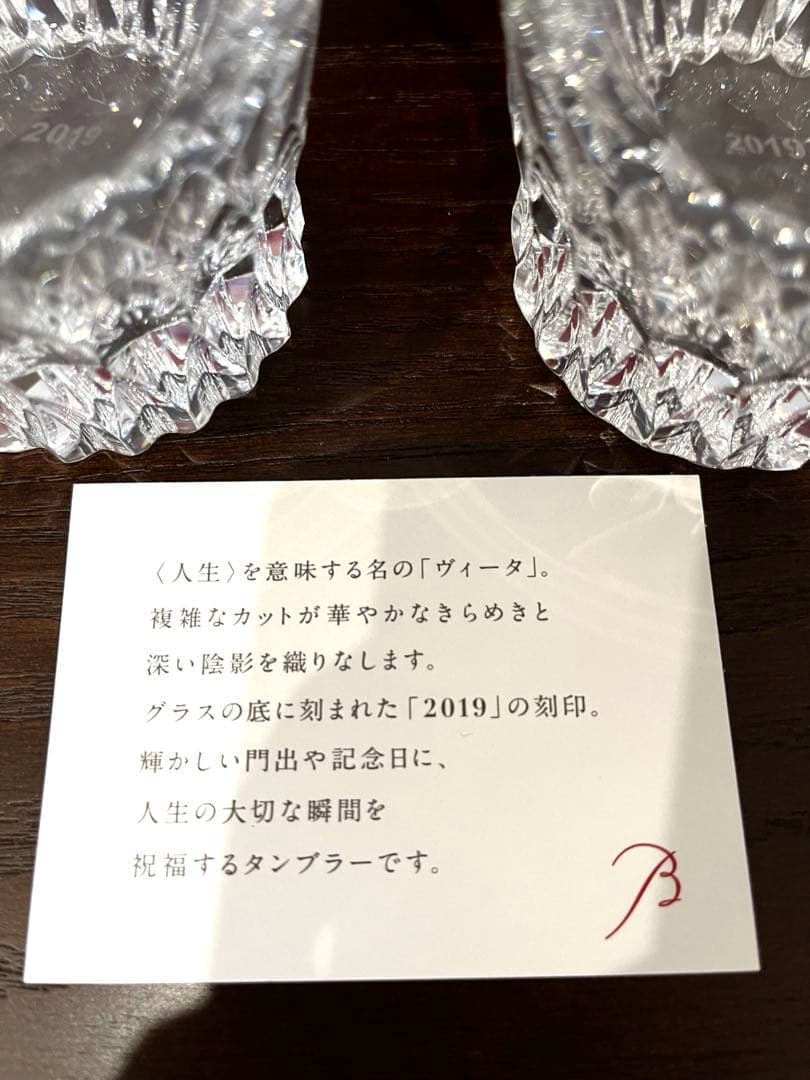 2019
2019
〈人生〉を意味する名の「ヴィータ」。
複雑なカットが華やかなきらめきと
深い陰影を織りなします。
グラスの底に刻まれた「2019」の刻印。
輝かしい門出や記念日に、
人生の大切な瞬間を
祝福するタンブラーです。
B